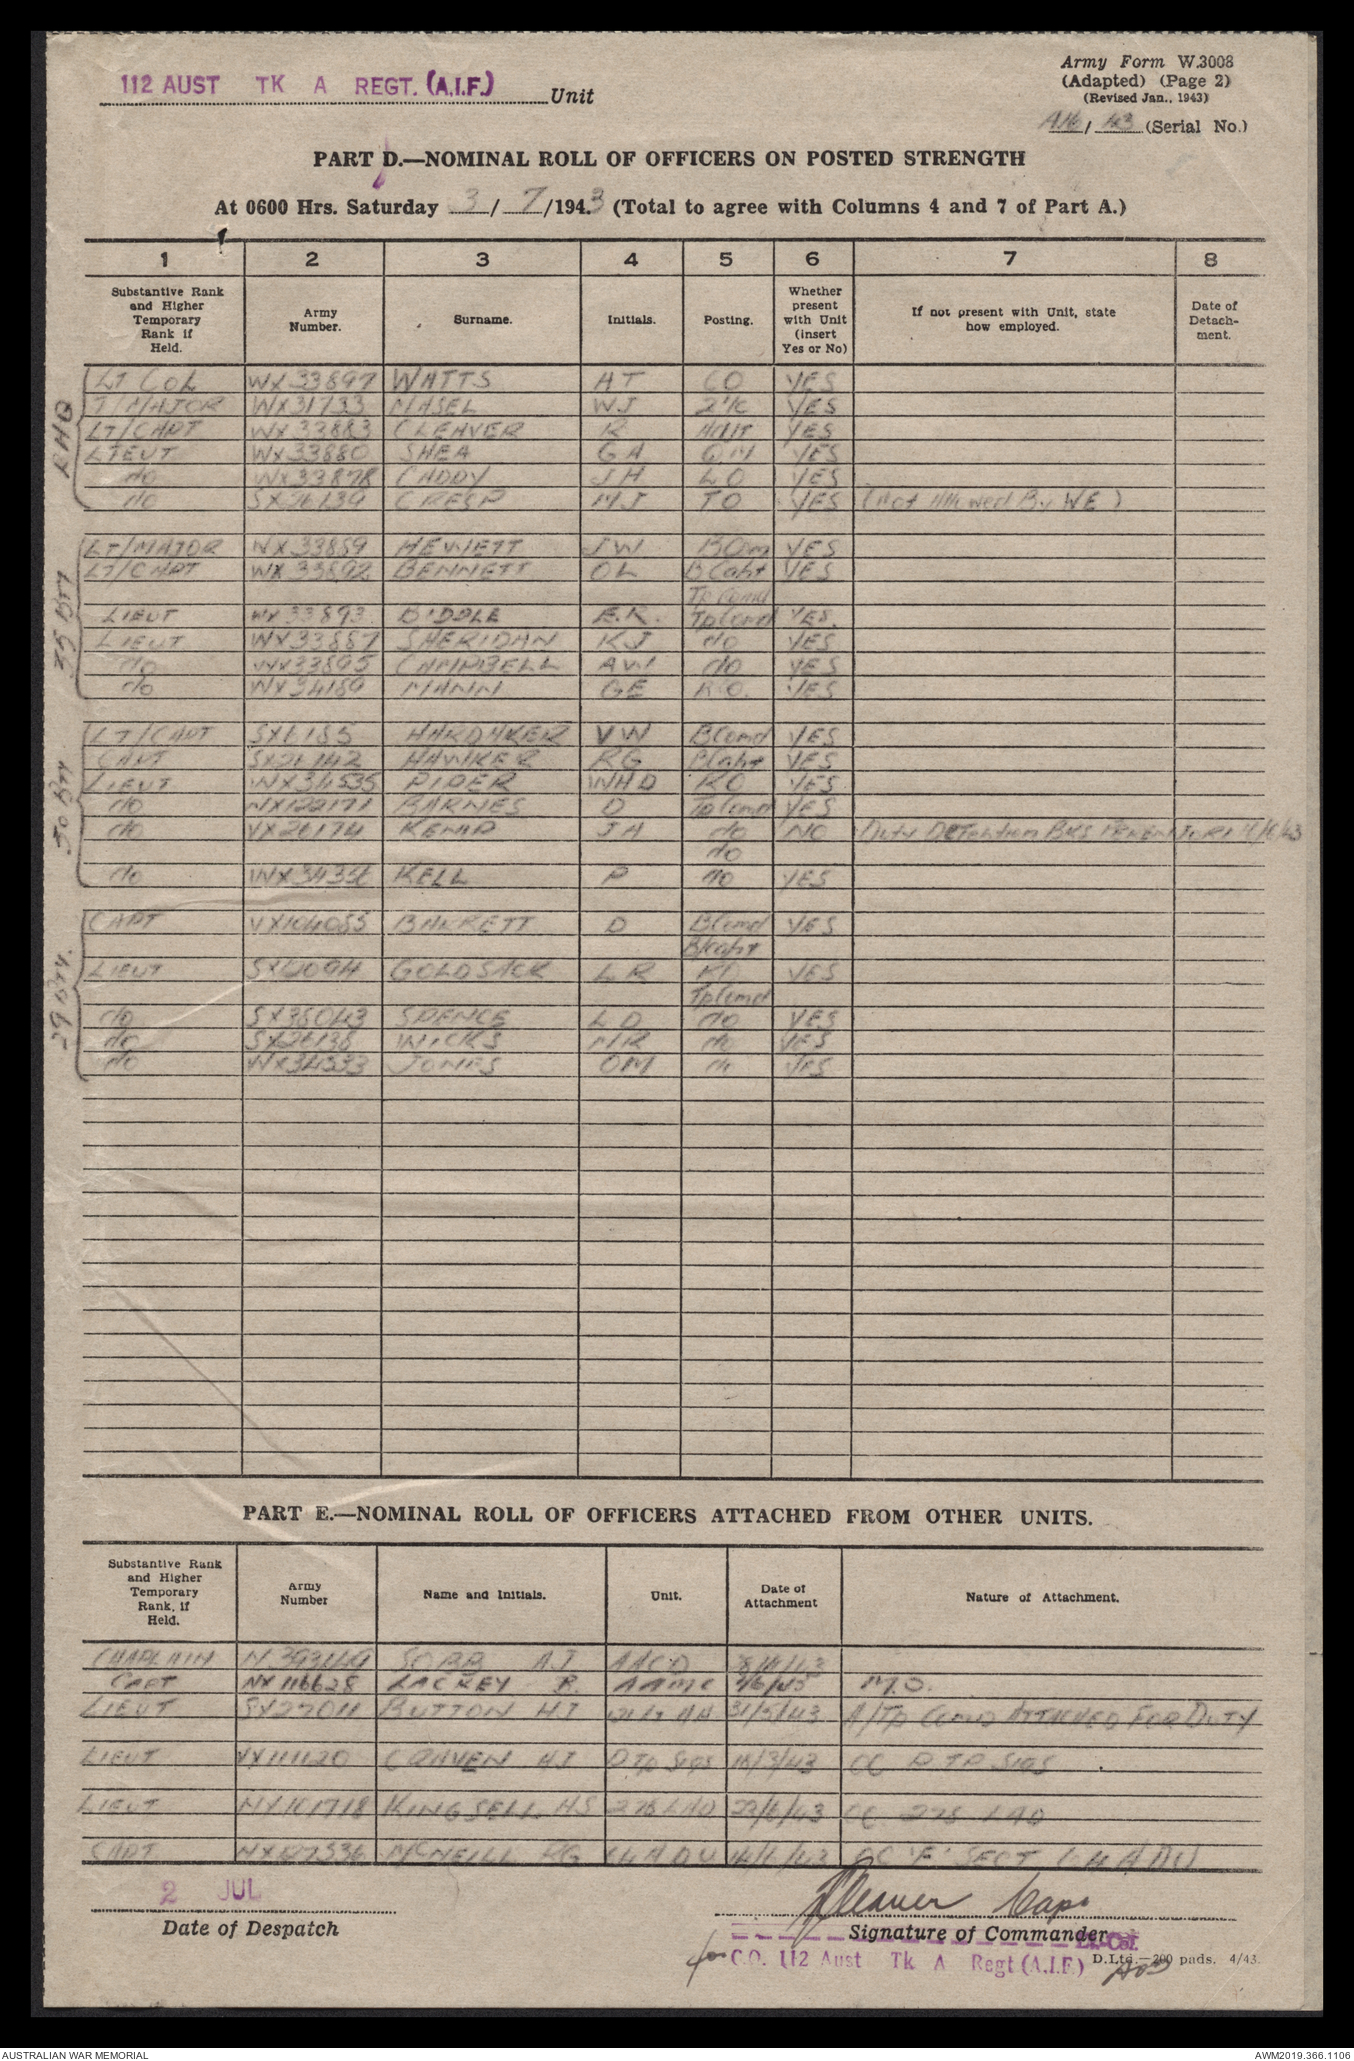 112 AUST TK A REGT. (A.I.F.) Unit
Army Form W.3008
(Adapted) (Page 2)
(Revised Jan., 1943)
/ 43 (Serial No.)
PART D.—NOMINAL ROLL OF OFFICERS ON POSTED STRENGTH
At 0600 Hrs. Saturday 3/ 7/1943 (Total to agree with Columns 4 and 7 of Part A.)
1 2 3 4 5 6 7 8
Substantive Rank and Higher Temporary Rank if Held. Army Number. Surname. Initials. Posting. Whether present with Unit (insert Yes or No) If not present with Unit, state how employed. Date of Detach-ment.
RHQ
LT COL WX33897 WATTS HT CO YES
T/MAJOR WX31733 MASEL WJ 2i/c YES
LT/CAPT WX33883 CLEAVER R Adjt YES
LIEUT WX33880 SHEA GA QM YES
do WX33878 CADDY JH LO YES
do SX26139 CRESP MJ TO YES (Not Allowed By WE)
Bty
LT/MAJOR WX33859 HEWETT JW B Com YES
LT/CAPT WX33892 BENNETT OL B Capt YES
Tp Comd
LIEUT WX33893 BIDDLE E.R. Tp Comd YES.
LIEUT WX33887 SHERIDAN KJ do YES
do WX33895 CAMPBELL AW do YES
do WX34189 MANN GE RO. YES
Bty
LT/CAPT SX6185 HARDAKER VW B Comd YES
CAPT SX26142 HAWKER RG B Capt YES
LIEUT WX34535 PIPER WHD RO YES
do NX122171 BARNES D Tp Comd YES
do VX26174 KEMP JA do NO Duty Detention Bks
do
do WX34356 KELL P do YES
29 Bty.
CAPT VX104055 BARRETT D B Comd YES
B/Capt
LIEUT SX12094 GOLDSACK LR RO YES
Tp Comd
do SX38043 SPENCE LD do YES
do SX26138 WICKS MR do YES
do WX34533 JONES OM do YES
PART E.—NOMINAL ROLL OF OFFICERS ATTACHED FROM OTHER UNITS.
Substantive Rank and Higher Temporary Rank, if Held. Army Number Name and Initials. Unit. Date of Attachment Nature of Attachment.
CHAPLAIN SOBB AJ AACD
CAPT NX116628 LACKEY B. AAMC M.O.
LIEUT SX27011 BUTTON HJ 31/5/43 A/Tp Comd ATTACHED FOR DUTY
LIEUT VX111120 CRAVEN HJ D Tp Sigs /3/43 OC D TP SIGS
LIEUT NX101718 KINGSELL HS 278 LAD 22/6/43 OC 278 LAD
CAPT NX127336 McNEILL RG OC 'F' SECT
2 JUL
Date of Despatch
R Cleaver Capt
Signature of Commander
Lt.-Col.
for C.O. 112 Aust Tk A Regt (A.I.F.)
D.Ltd.—200 pads. 4/43.
AUSTRALIAN WAR MEMORIAL
AWM2019.366.1106